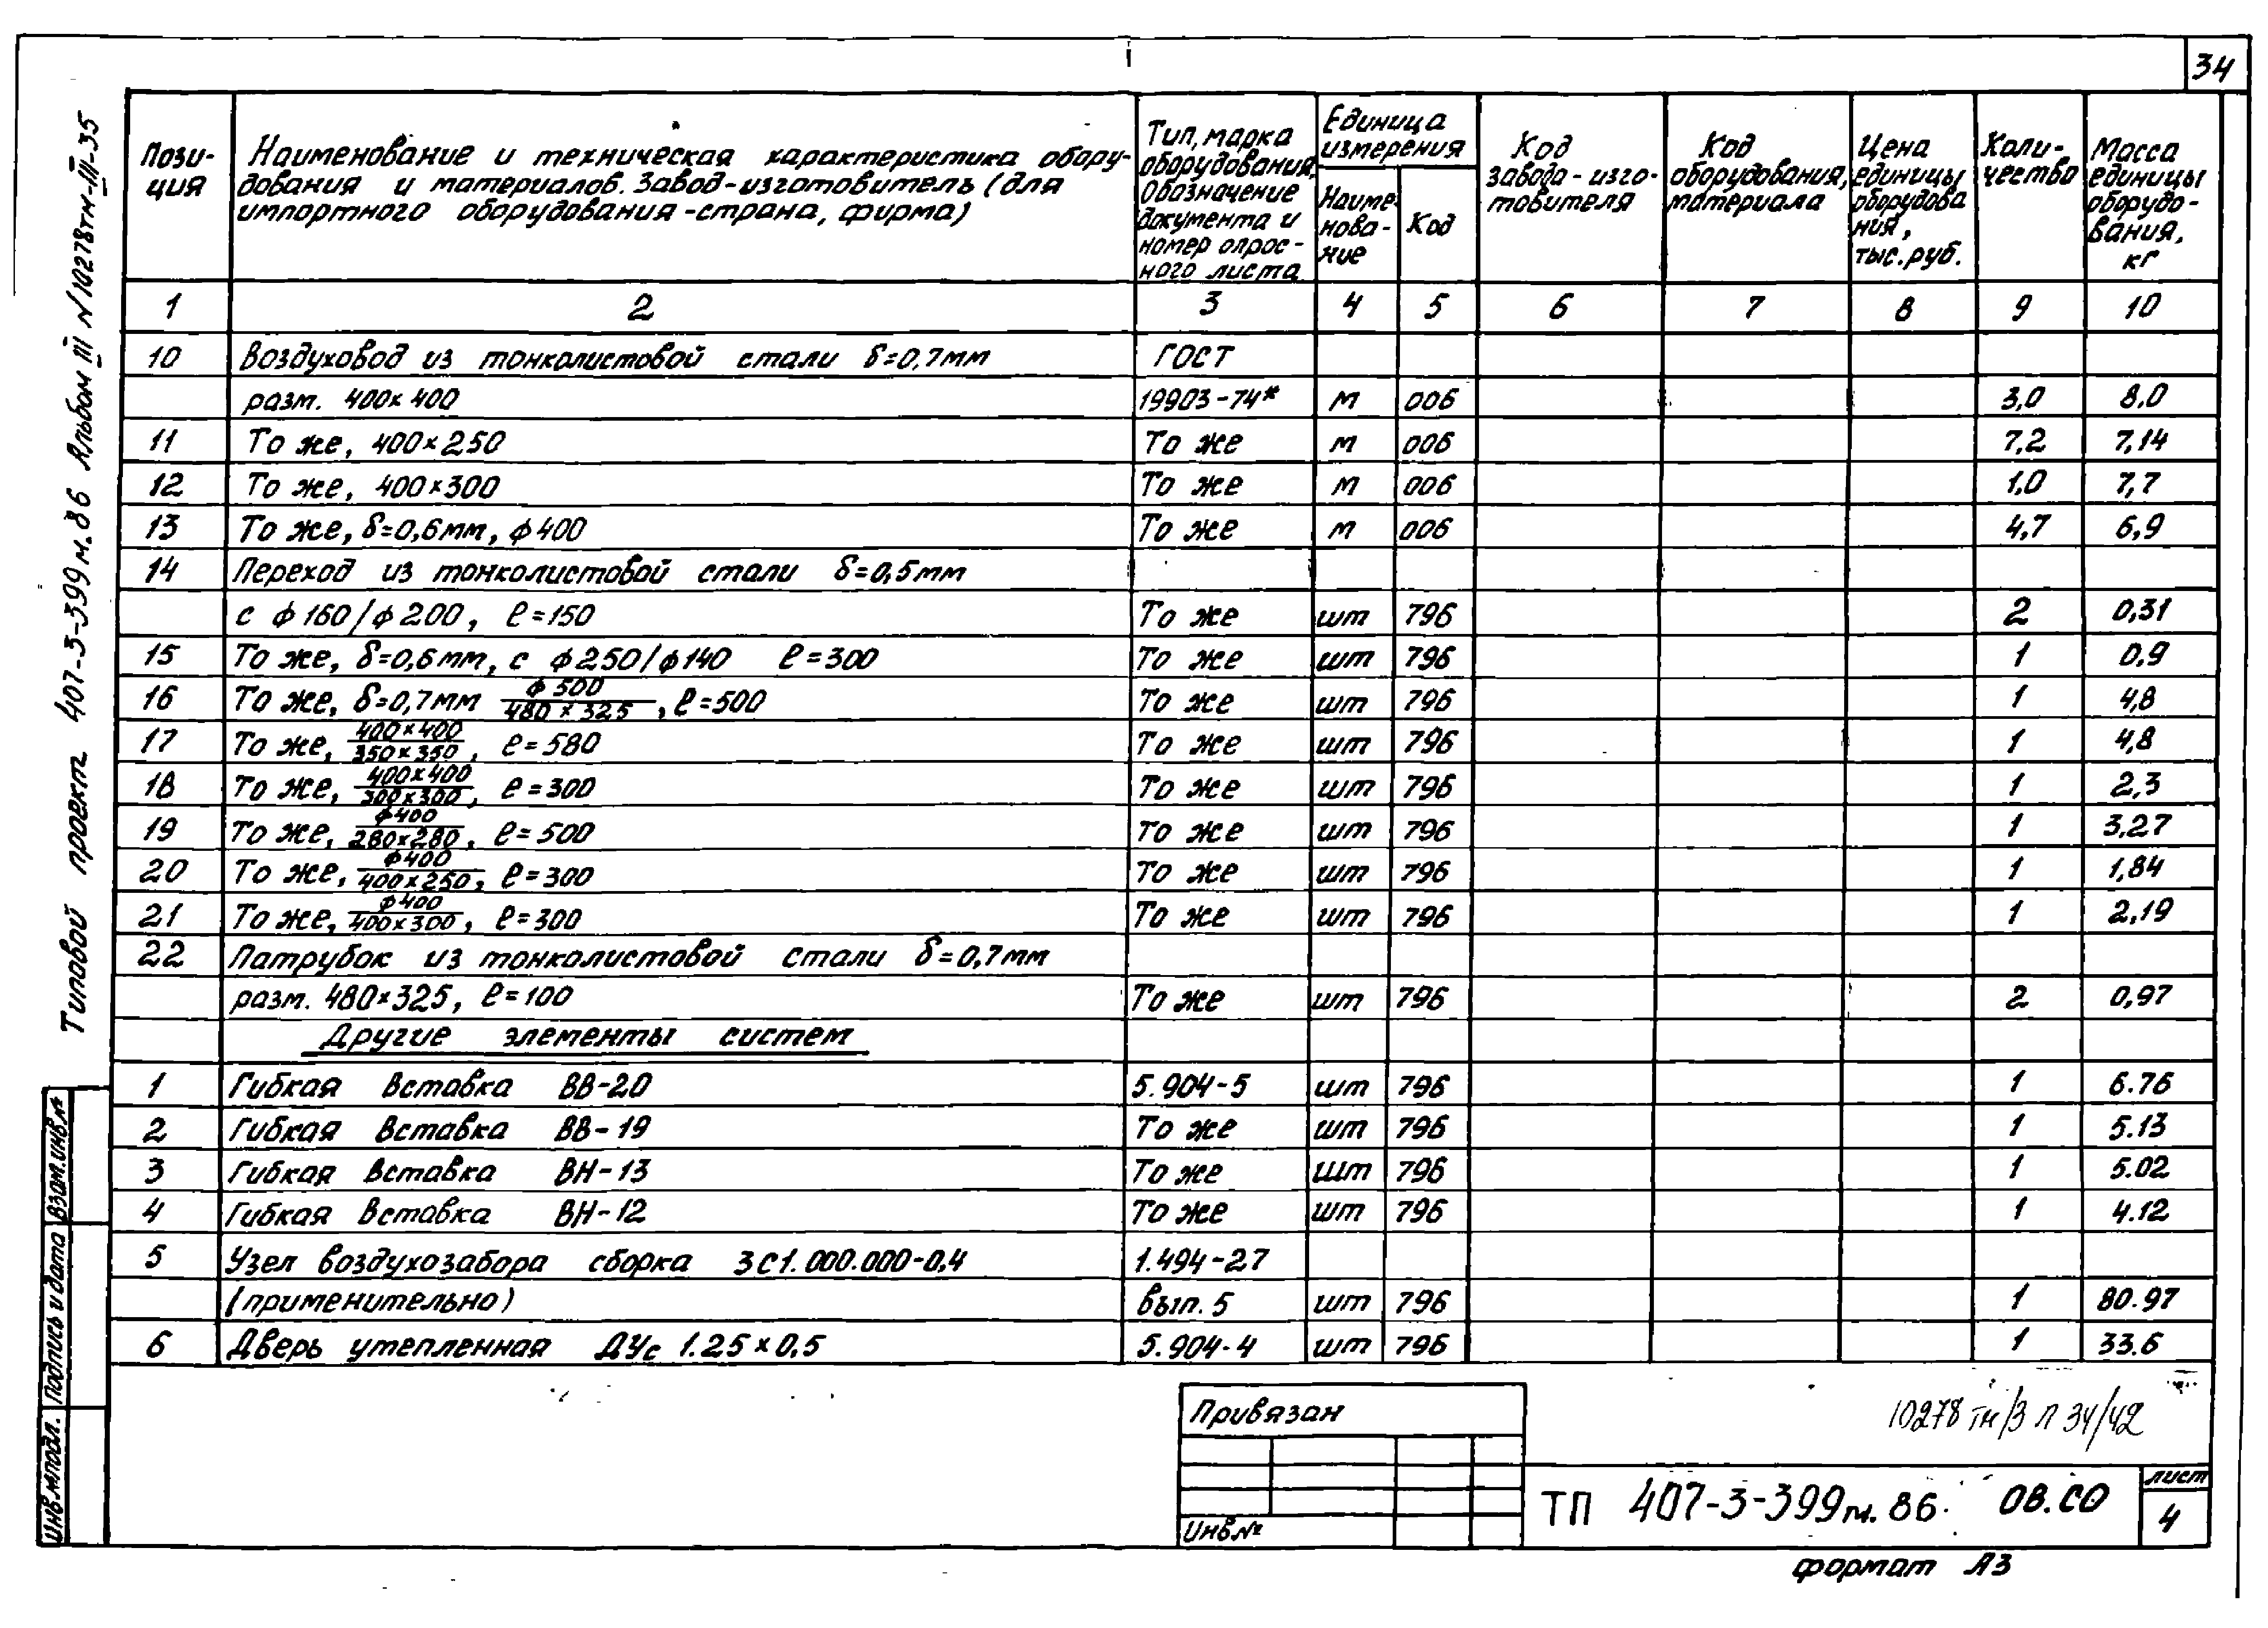 34
Пози-
ция
Наименование и техническая характеристика обору-
дования и материалов. Завод-изготовитель (для
импортного оборудования -страна, фирма)
Тип, марка
оборудования,
Обозначение
документа и
номер опрос-
ного листа
Единица
измерения
Наиме-
нова-
ние
Код
Код
завода-изго-
товителя
Код
оборудования,
материала
Цена
единицы
оборудова
ния,
тыс.руб.
Коли-
чество
Масса
единицы
оборудо-
вания,
кг
1 2 3 4 5 6 7 8 9 10
10 Воздуховод из тонколистовой стали δ=0,7мм ГОСТ
разм. 400×400 19903-74* м 006 3,0 8.0
11 То же, 400×250 То же м 006 7,2 7,14
12 То же, 400×300 То же м 006 1,0 7,7
13 То же, δ=0,6мм, ф400 То же м 006 4,7 6,9
14 Переход из тонколистовой стали δ=0,5мм
с ф160/ф200, ℓ=150 То же шт 796 2 0,31
15 То же, δ=0,6мм, с ф250/ф140 ℓ=300 То же шт 796 1 0,9
16 То же, δ=0,7мм ф500/480×325, ℓ=500 То же шт 796 1 4,8
17 То же, 400×400/350×350, ℓ=580 То же шт 796 1 4,8
18 То же, 400×400/300×300, ℓ=300 То же шт 796 1 2,3
19 То же, ф400/280×280, ℓ=500 То же шт 796 1 3,27
20 То же, ф400/400×250, ℓ=300 То же шт 796 1 1,84
21 То же, ф400/400×300, ℓ=300 То же шт 796 1 2,19
22 Патрубок из тонколистовой стали δ=0,7мм
разм. 480×325, ℓ=100 То же шт 796 2 0,97
Другие элементы систем
1 Гибкая вставка ВВ-20 5.904-5 шт 796 1 6.76
2 Гибкая вставка ВВ-19 То же шт 796 1 5.13
3 Гибкая вставка ВН-13 То же шт 796 1 5.02
4 Гибкая вставка ВН-12 То же шт 796 1 4.12
5 Узел воздухозабора сборка 3С1.000.000-0,4 1.494-27
(применительно) вып. 5 шт 796 1 80.97
6 Дверь утепленная ДУс 1.25×0,5 5.904-4 шт 796 1 33.6
Типовой проект 407-3-399м.86 Альбом III №10278тм-III-35
Взам.инв.№
Подпись и дата
Инв.№подл.
Привязан
Инв.№
10278 тм/3 л 34/42
ТП 407-3-399м.86. ОВ.СО
лист
4
формат А3